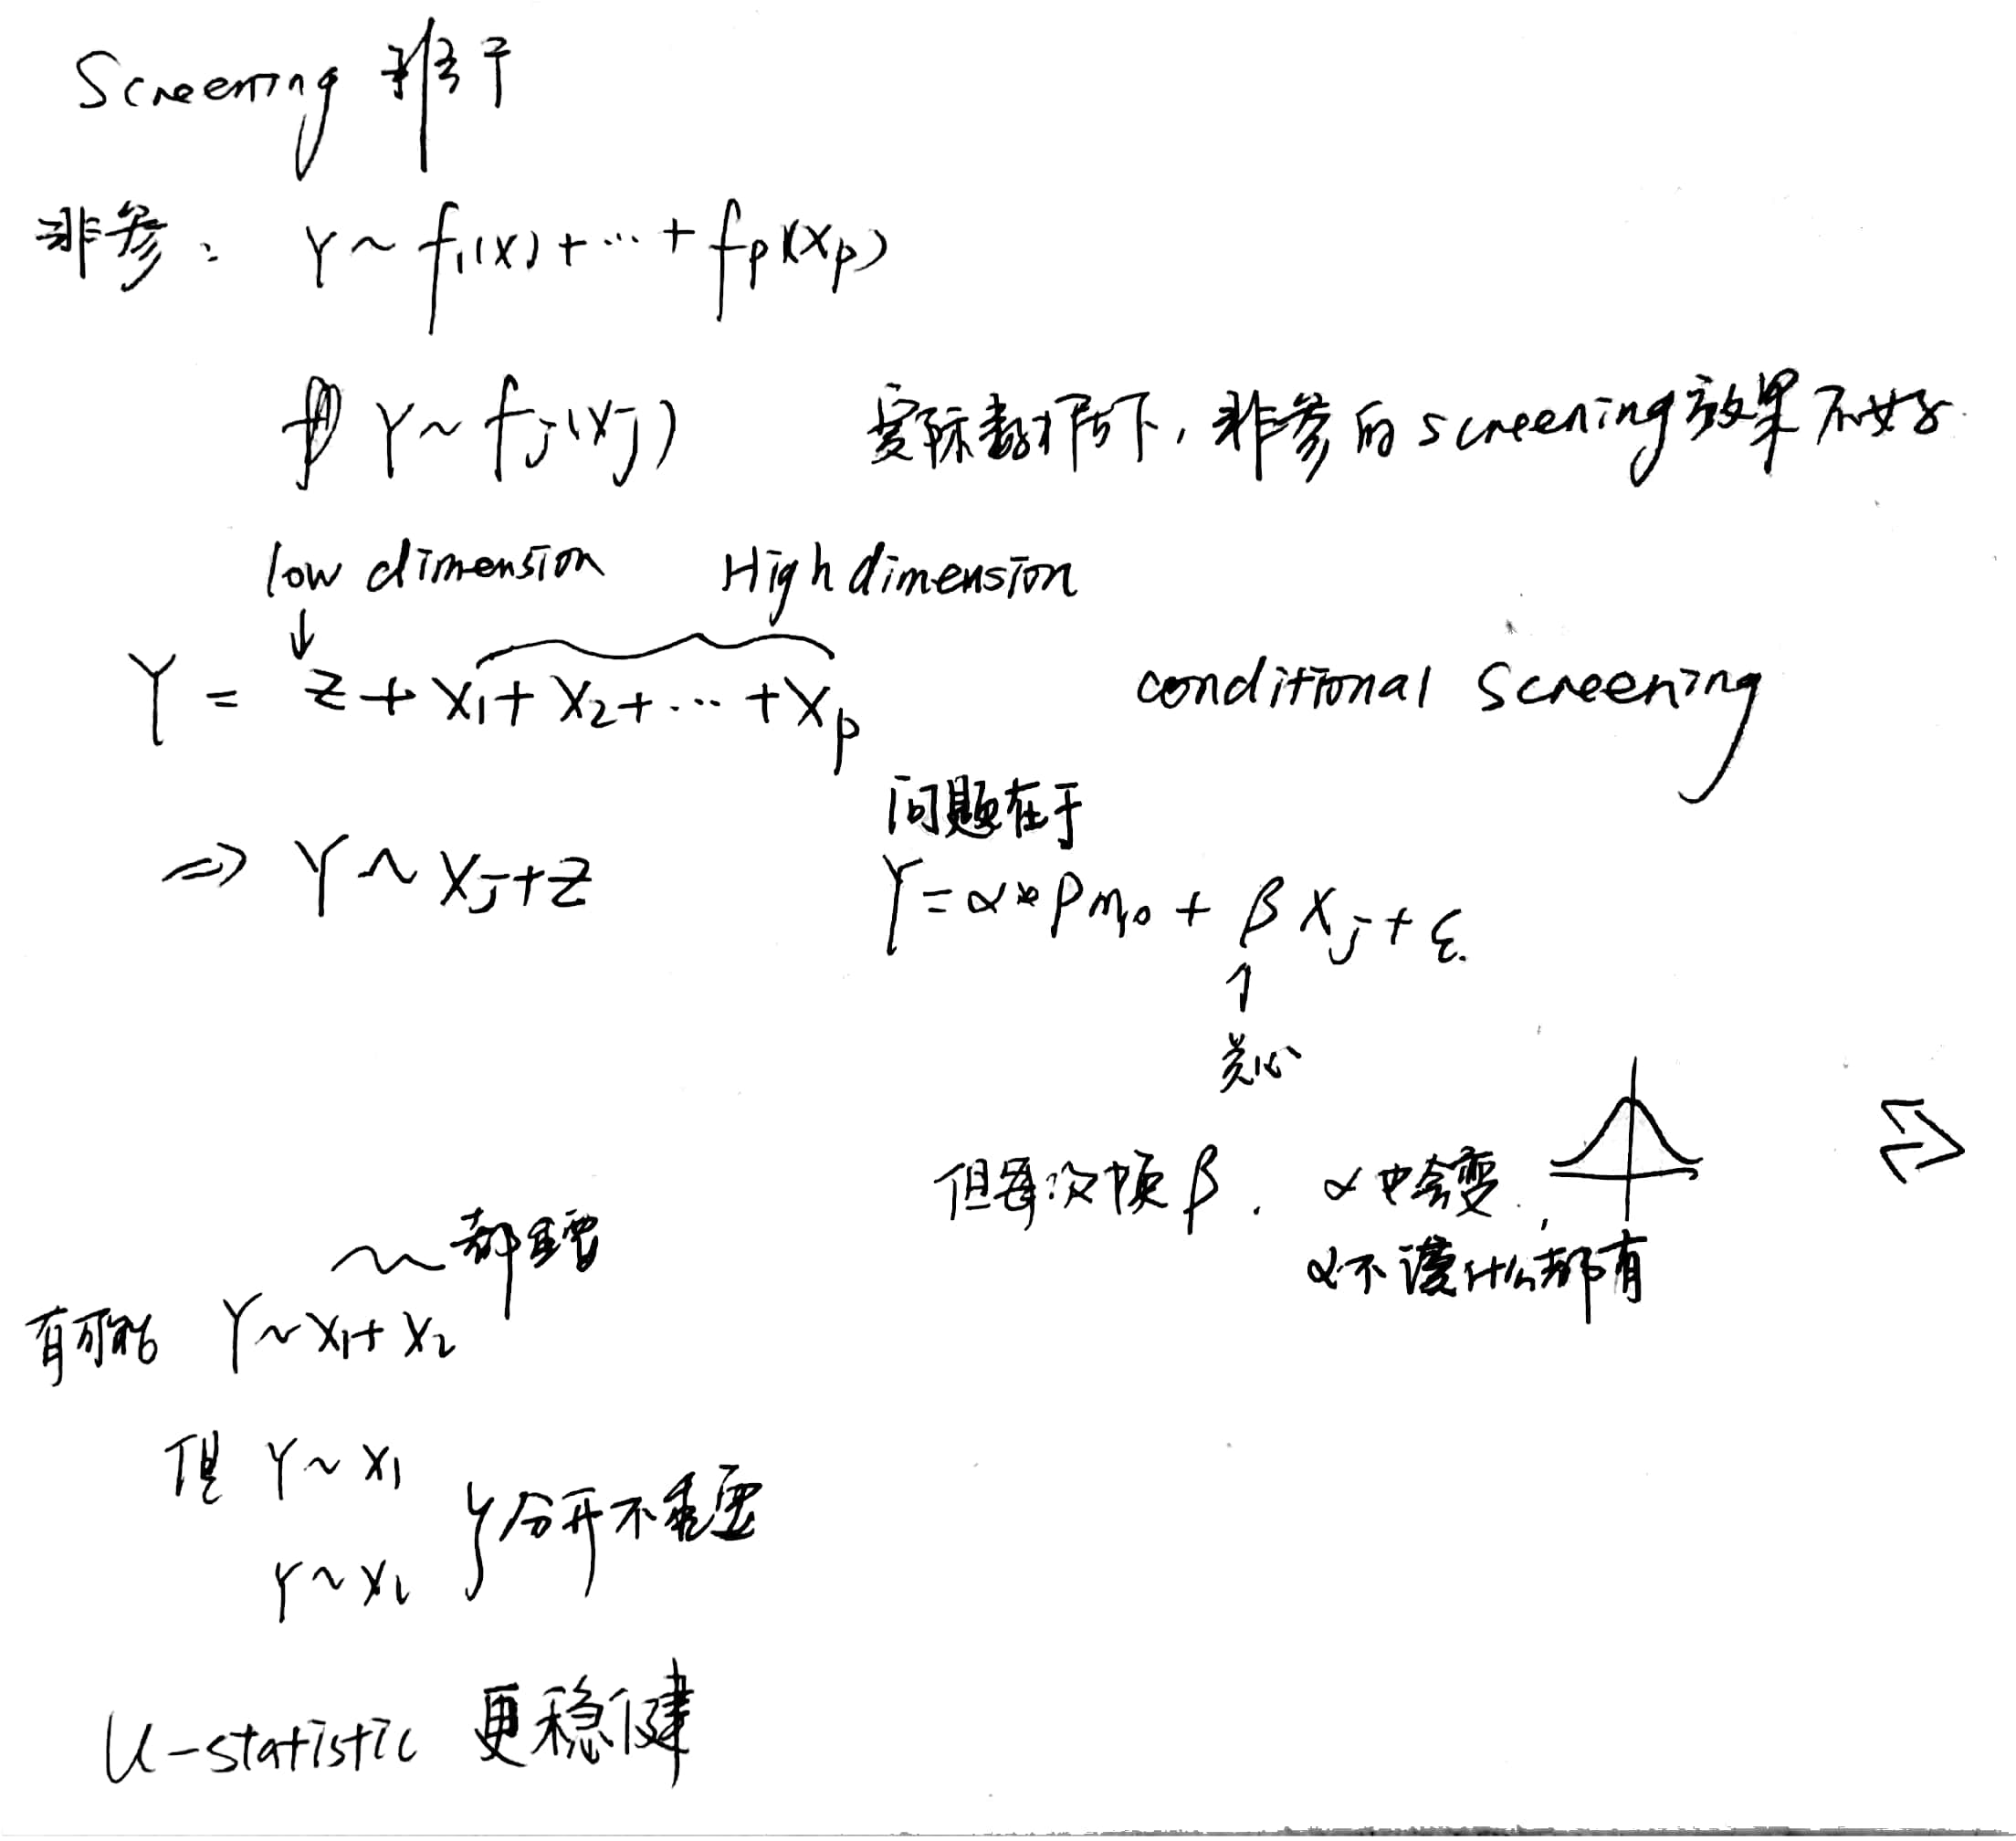 Screening
非参: Y ~ f₁(X) + ⋯ + fp(Xp)
Y ~ fj(Xj) 实际数据下, 非参的screening效果不好.
low dimension High dimension
↓
Y = Z + X₁ + X₂ + ⋯ + Xp conditional screening
问题在于
⇒ Y ~ Xj + Z
Y = α * PM₁₀ + β Xj + ε.
↑
关心
但每次换 β, α也会变.
α不该什么都有
都重要
有可能 Y ~ X₁ + X₂
但 Y ~ X₁
} 分开不重要
Y ~ X₂
U-statistic 更稳健